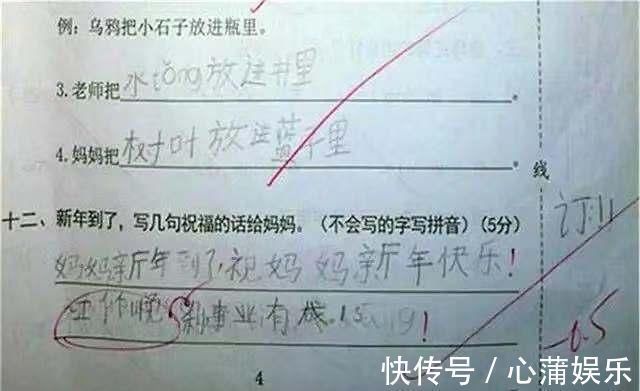 例：乌鸦把小石子放进瓶里。
3.老师把水tǒng放进井里。
4.妈妈把树叶放进蓝子里。
线
十二、新年到了，写几句祝福的话给妈妈。（不会写的字写拼音）（5分）
订:11
妈妈新年到了,祝妈妈新年快乐！
事业有
-0.5
4
快传号 / 心蒲娱乐